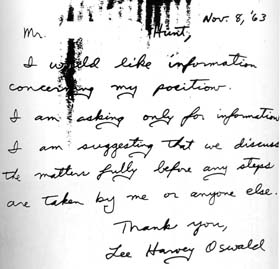 Nov. 8, '63
Mr. Hunt,
I would like information
concerning my position.
I am asking only for information
I am suggesting that we discuss
the matter fully before any steps
are taken by me or anyone else.
Thank you,
Lee Harvey Oswald